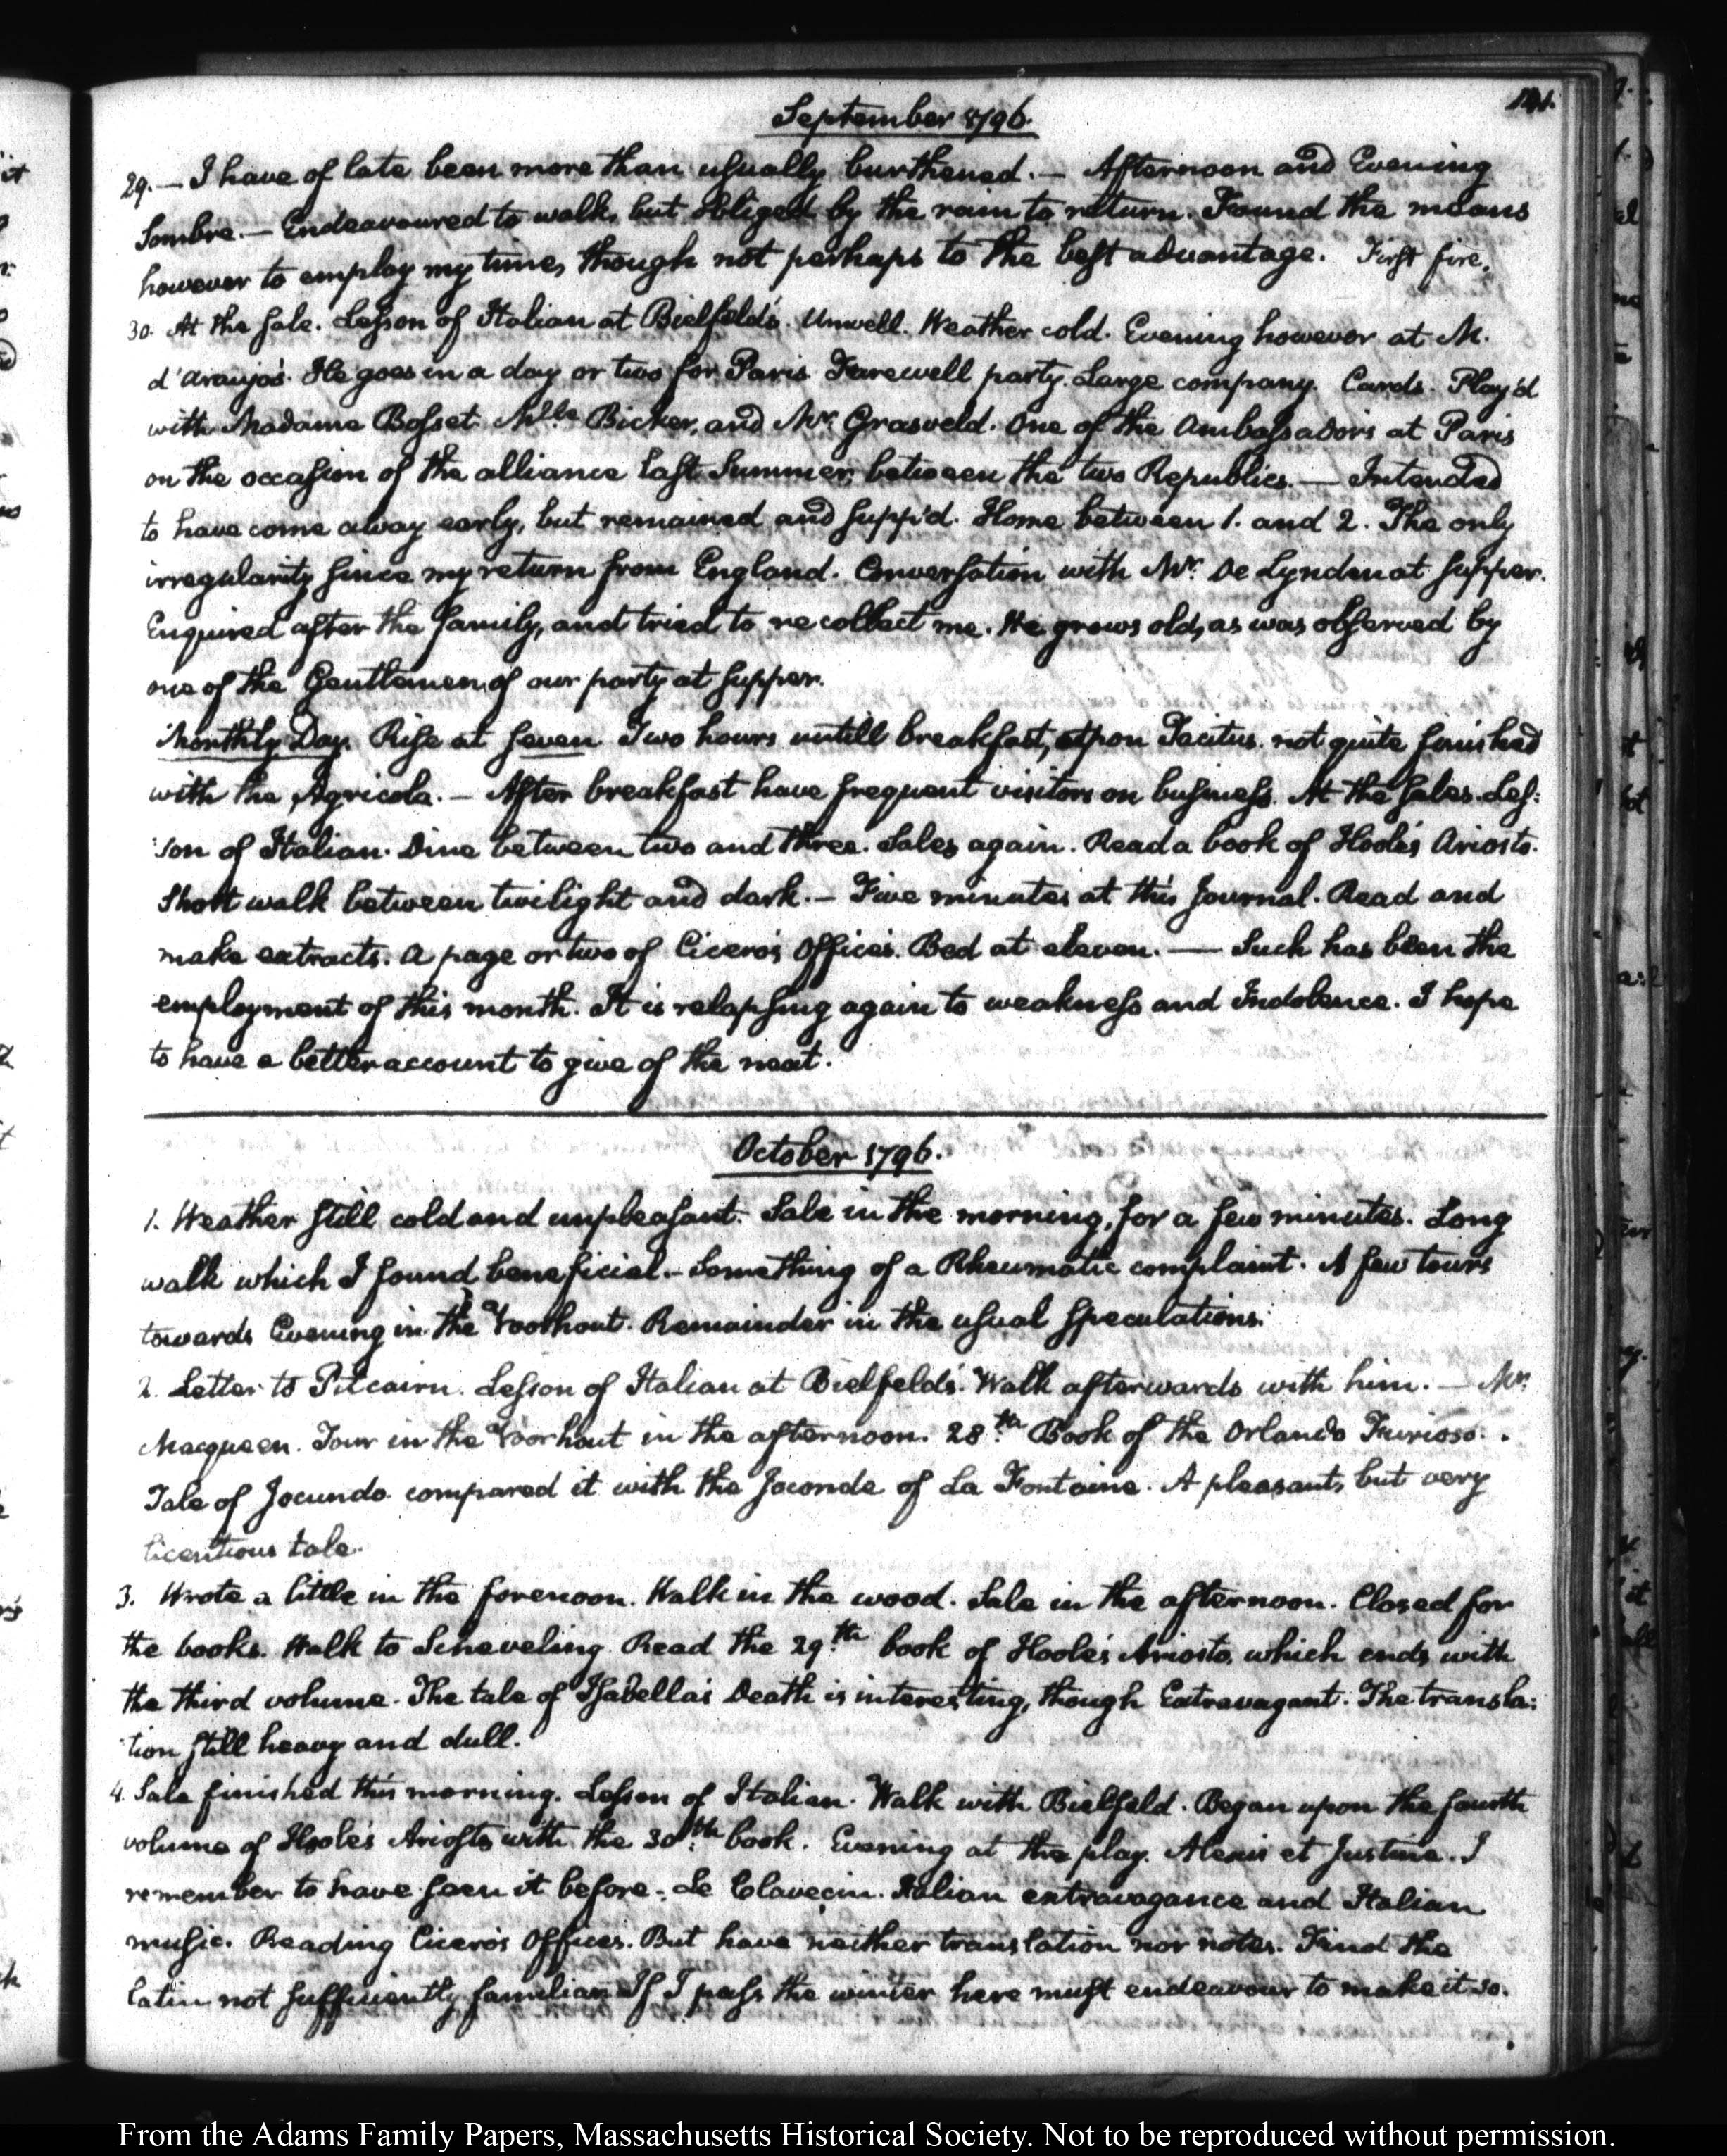 141.
September 1796.
29. — I have of late been more than usually burthened. — Afternoon and Evening
Sombre. — Endeavoured to walk, but obliged by the rain to return. Found the means
however to employ my time, though not perhaps to the best advantage. First fire.
30. At the sale. Lesson of Italian at Bielfeld's. Unwell. Weather cold. Evening however at M.
d'Araujo's. He goes in a day or two for Paris. Farewell party. Large company. Cards. Play'd
with Madame Bosset. Mlle. Bicker, and Mr. Grasveld. One of the Ambassadors at Paris
on the occasion of the alliance last Summer, between the two Republics. — Intended
to have come away early, but remained and supp'd. Home between 1. and 2. The only
irregularity since my return from England. Conversation with Mr. De Lynden at supper.
Enquired after the family, and tried to recollect me. He grows old, as was observed by
one of the Gentlemen of our party at supper.
Monthly Day. Rise at seven. Two hours untill breakfast, upon Tacitus. not quite finished
with the Agricola. — After breakfast have frequent visitors on business. At the sales. Les:
:son of Italian. Dine between two and three. Sales again. Read a book of Hoole's Ariosto.
Short walk between twilight and dark. — Five minutes at this Journal. Read and
make extracts. A page or two of Cicero's Offices. Bed at eleven. — Such has been the
employment of this month. It is relapsing again to weakness and Indolence. I hope
to have a better account to give of the next.
October 1796.
1. Weather still cold and unpleasant. Sale in the morning, for a few minutes. Long
walk which I found beneficial. — Something of a Rheumatic complaint. A few tours
towards Evening in the Voorhout. Remainder in the usual speculations.
2. Letter to Pitcairn. Lesson of Italian at Bielfeld's. Walk afterwards with him. — Mr.
Macqueen. Tour in the Voorhout in the afternoon. 28.th Book of the Orlando Furioso.
Tale of Jocundo. compared it with the Joconde of La Fontaine. A pleasant, but very
licentious tale.
3. Wrote a little in the forenoon. Walk in the wood. Sale in the afternoon. Closed for
the books. Walk to Scheveling. Read the 29.th book of Hoole's Ariosto, which ends with
the third volume. The tale of Isabella's Death is interesting, though Extravagant. The transla:
:tion still heavy and dull.
4. Sale finished this morning. Lesson of Italian. Walk with Bielfeld. Began upon the fourth
volume of Hoole's Ariosto with the 30.th book. Evening at the play. Alexis et Justine. I
remember to have seen it before. Le Clavecin. Italian extravagance and Italian
music. Reading Cicero's Offices. But have neither translation nor notes. Find the
latin not sufficiently familiar. If I pass the winter here must endeavour to make it so.
From the Adams Family Papers, Massachusetts Historical Society. Not to be reproduced without permission.